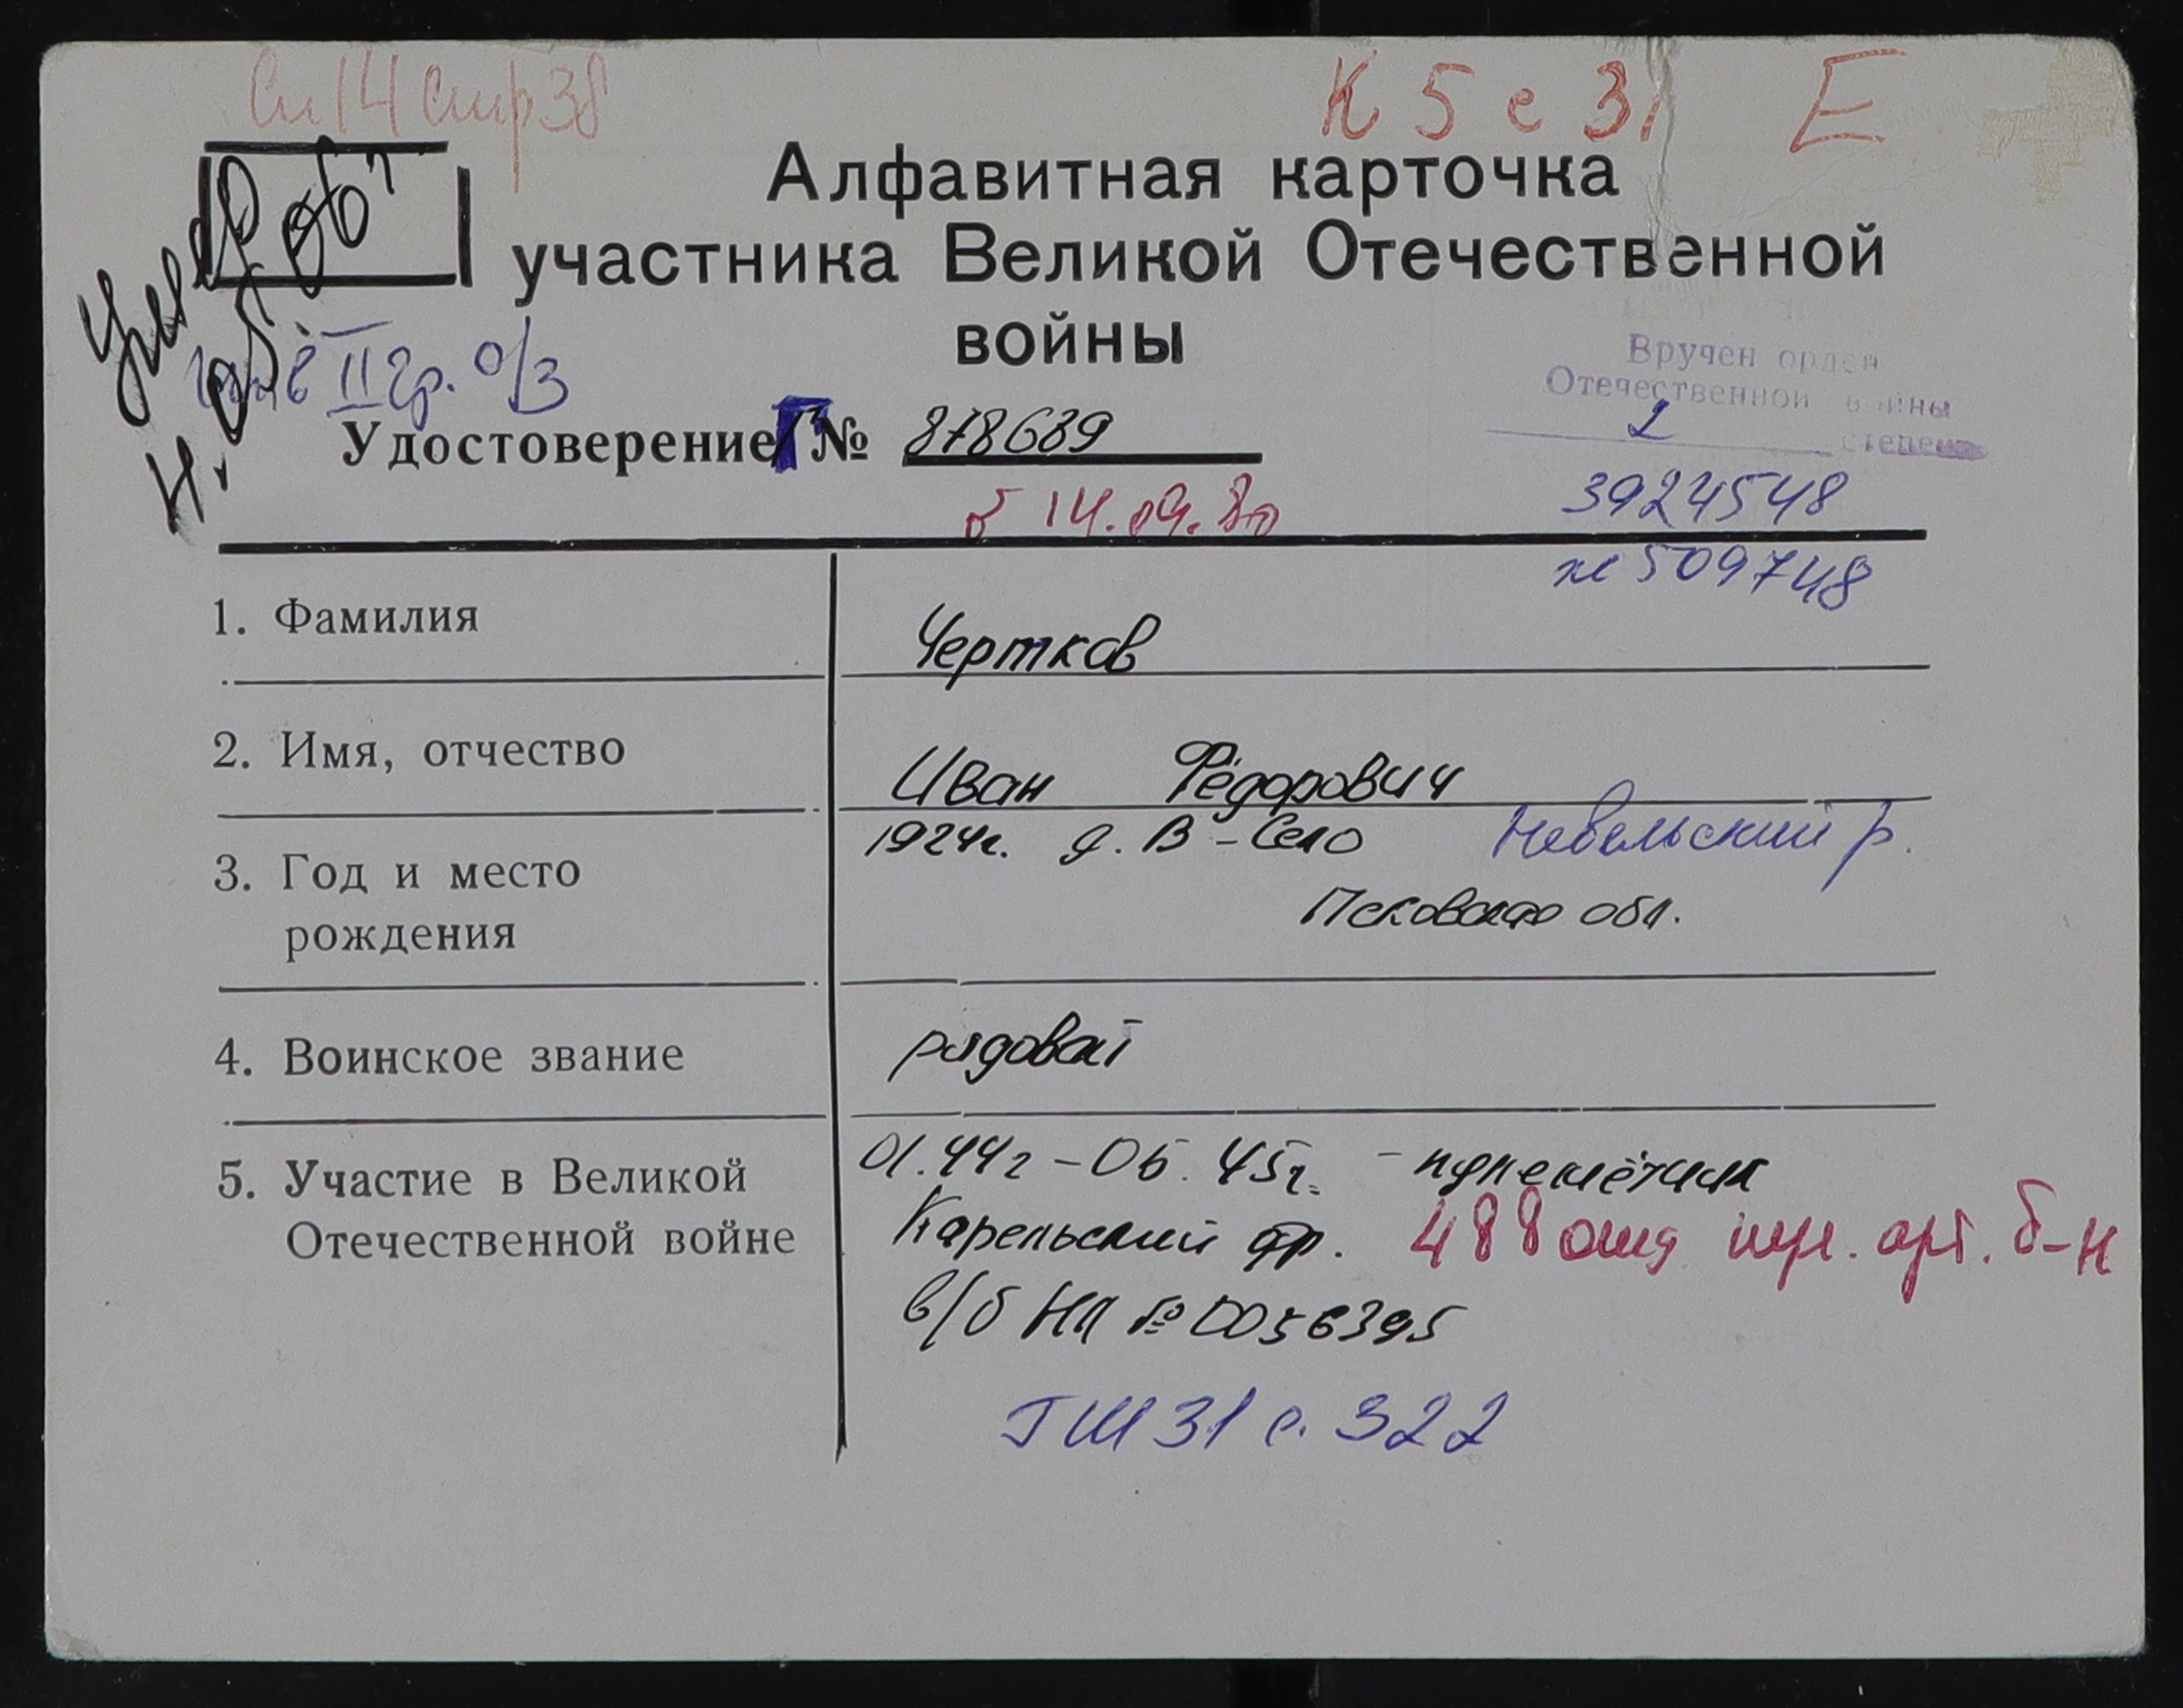 Сп 14 стр 38
К 5 с 31 Е
Алфавитная карточка
участника Великой Отечественной
войны
II гр. о/з
Вручен орден
Отечественной войны
2 степени
Удостоверение Г № 878689
3924548
14.09.80
№ 509748
1. Фамилия Чертков
2. Имя, отчество Иван Фёдорович
3. Год и место рождения 1924г. д. В-Село Невельский р.
Псковская обл.
4. Воинское звание рядовой
5. Участие в Великой Отечественной войне 01.44г - 05.45г. - пулемётчик
Карельский фр. 488 отд пул. арт. б-н
в/б НЛ № 0056395
ГШ 31 с. 322